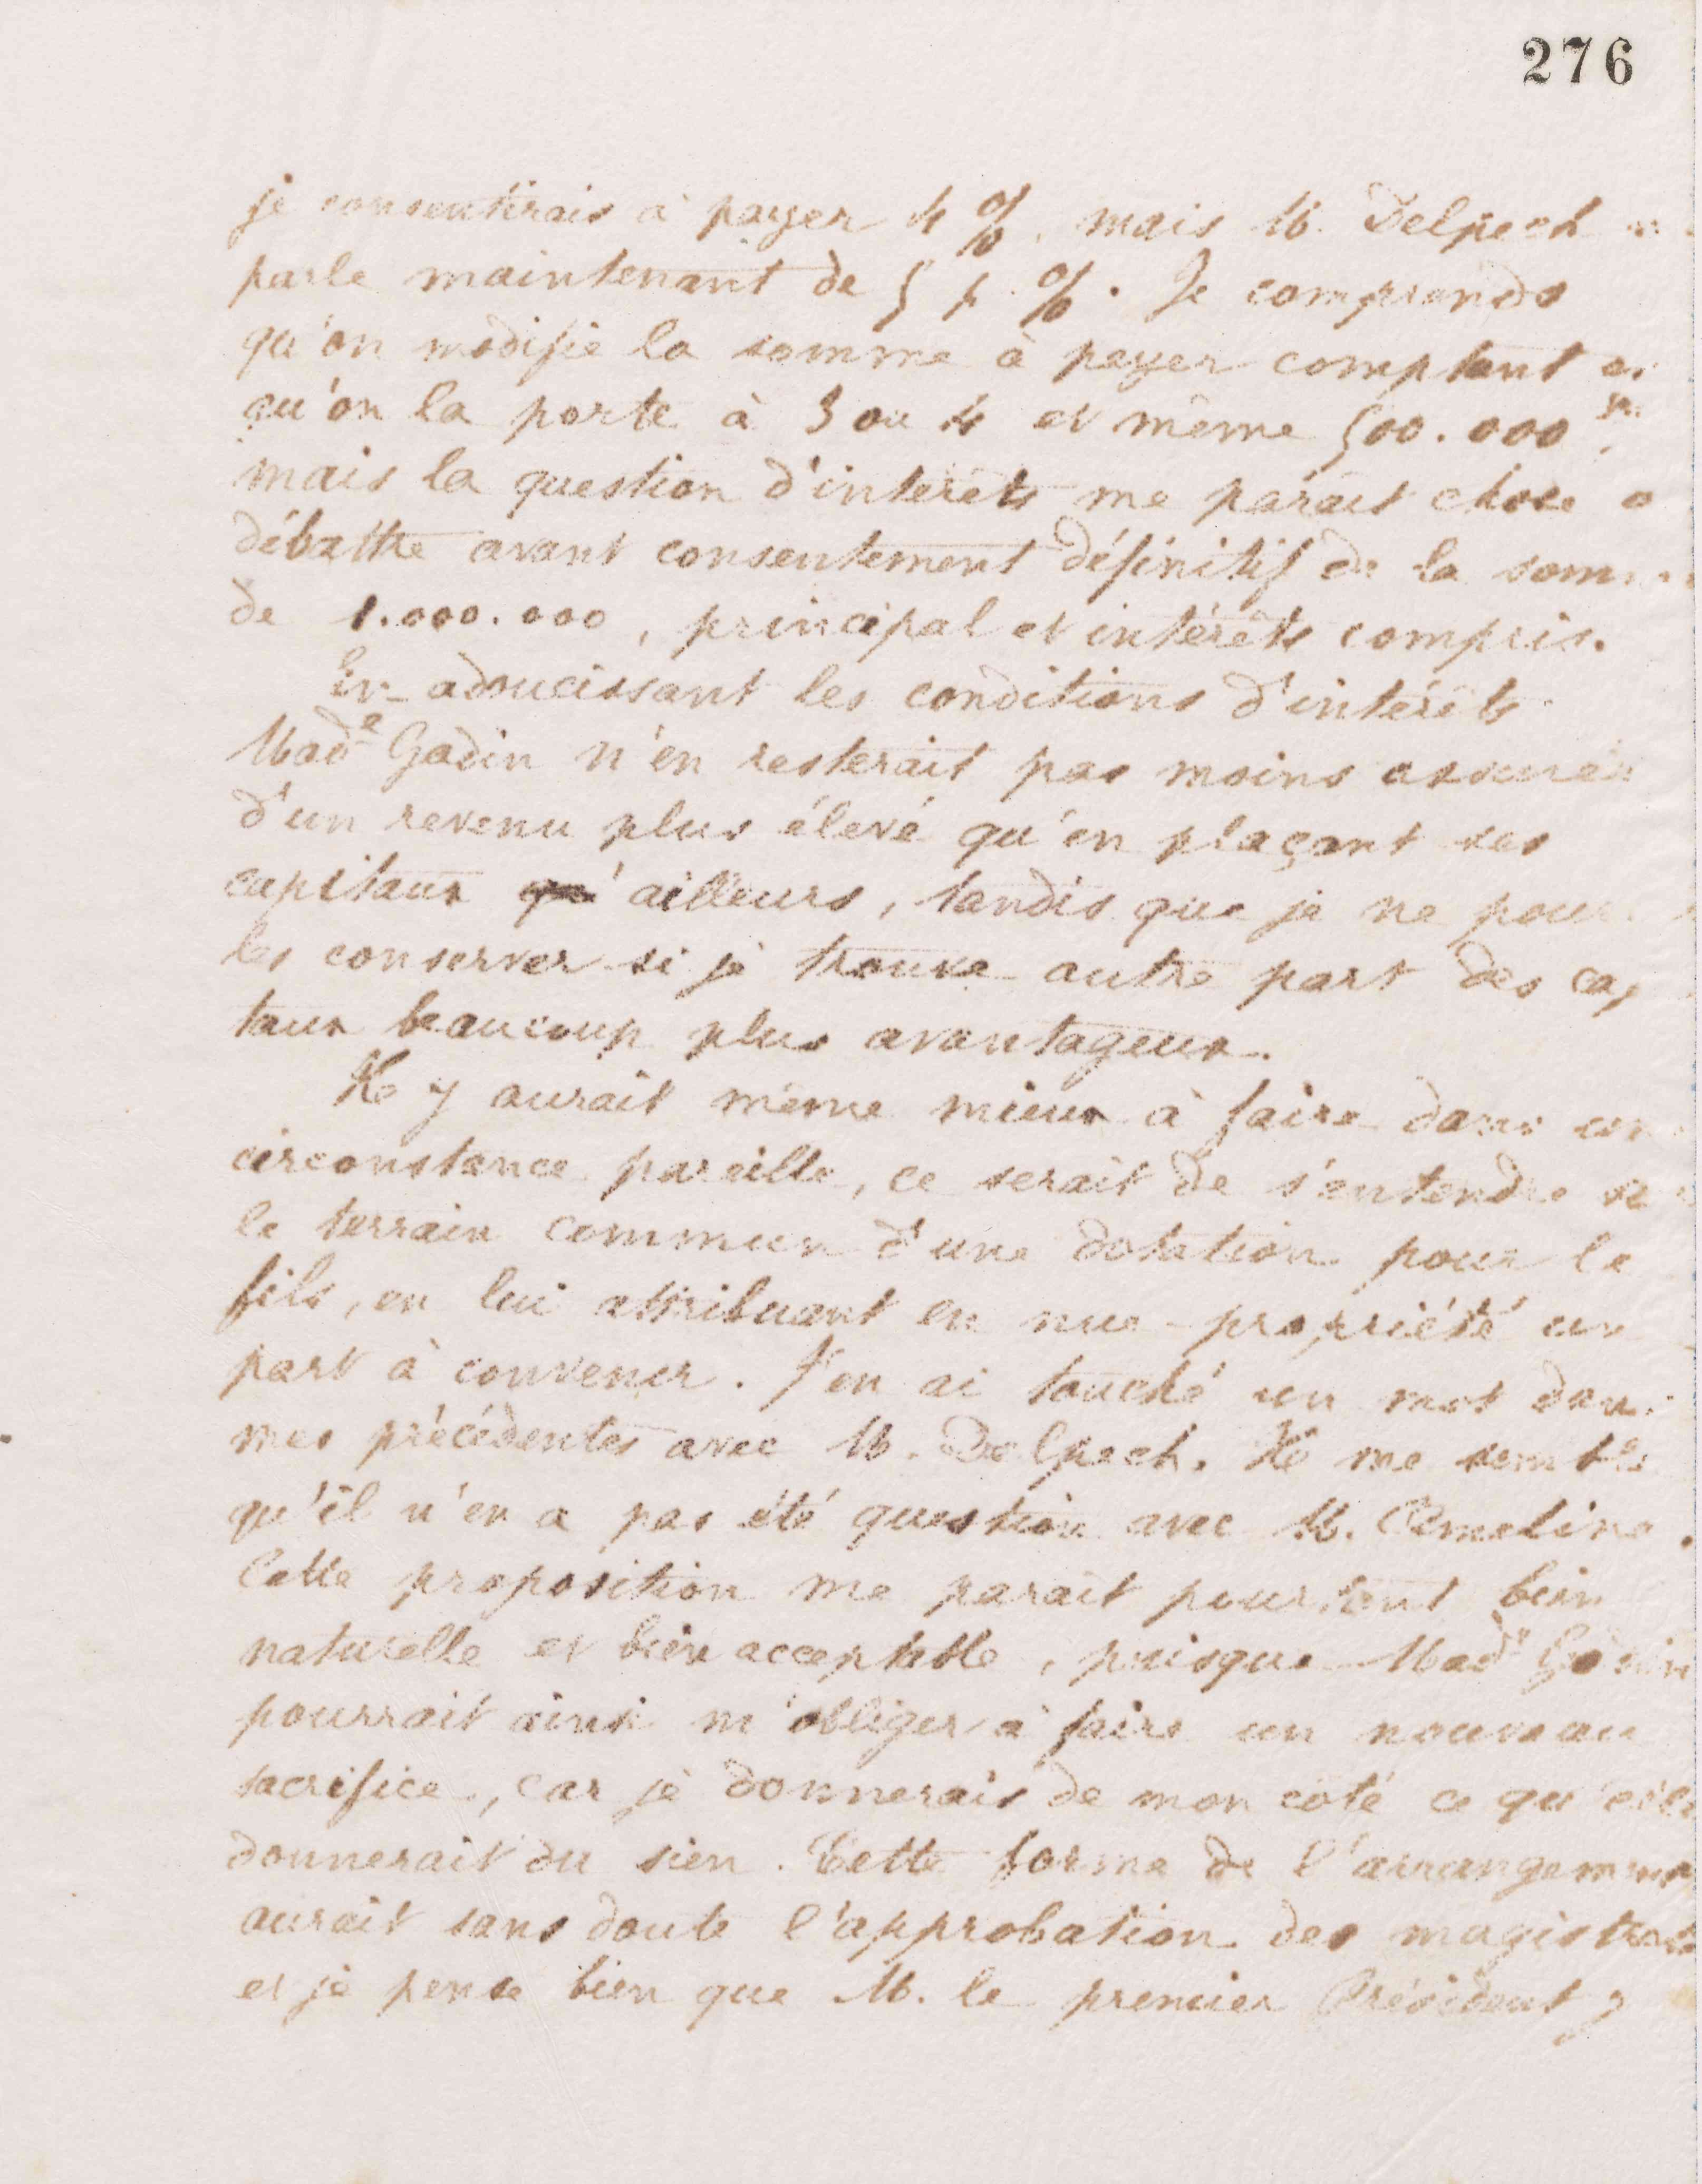 276
je consentirais à payer 4 %, mais M. Delpech
parle maintenant de 5 p. %. Je comprends
qu'on modifie la somme à payer comptant
qu'on la porte à 3 ou 4 et même 500.000 fr.
mais la question d'intérêts me paraît chose
débattre avant consentement définitif de la som
de 1.000.000, principal et intérêts compris.
En adoucissant les conditions d'intérêts
Made Godin n'en resterait pas moins assurée
d'un revenu plus élevé qu'en plaçant ses
capitaux ailleurs, tandis que je ne pour
les conserver si je trouve autre part des cap
taux beaucoup plus avantageux.
Il y aurait même mieux à faire dans un
circonstance pareille, ce serait de s'entendre
le terrain commun d'une dotation pour le
fils, en lui attribuant en nue-propriété un
part à convenir. J'en ai touché un mot dan
mes précédentes avec M. Delpech. Il me semble
qu'il n'en a pas été question avec M.
Cette proposition me paraît pourtant bien
naturelle et bien acceptable, puisque Made Godin
pourrait ainsi m'obliger à faire un nouveau
sacrifice, car je donnerais de mon côté ce qu'elle
donnerait du sien. Cette forme de l'arrangement
aurait sans doute l'approbation des magistrats
et je pense bien que M. le premier Président y